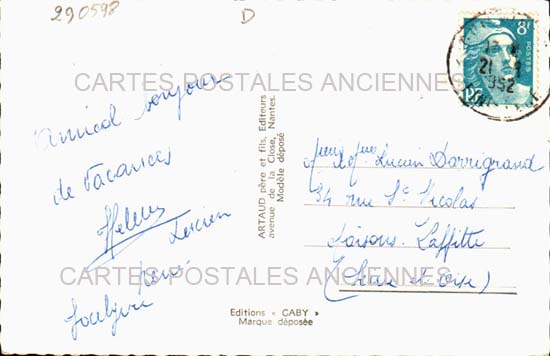 290598
D
8F
POSTES
21
1952
CARTES POSTALES ANCIENNES
Amical bonjour
de Vacances
Hélène
Lucien
René
Jocelyne
ARTAUD père et fils, Editeurs
avenue de la Close, Nantes.
Modèle déposé
Lucien Darrigrand
34 rue St Nicolas
Maisons-Laffitte
(Seine et Oise)
CARTES POSTALES ANCIENNES
Editions « GABY »
Marque déposée